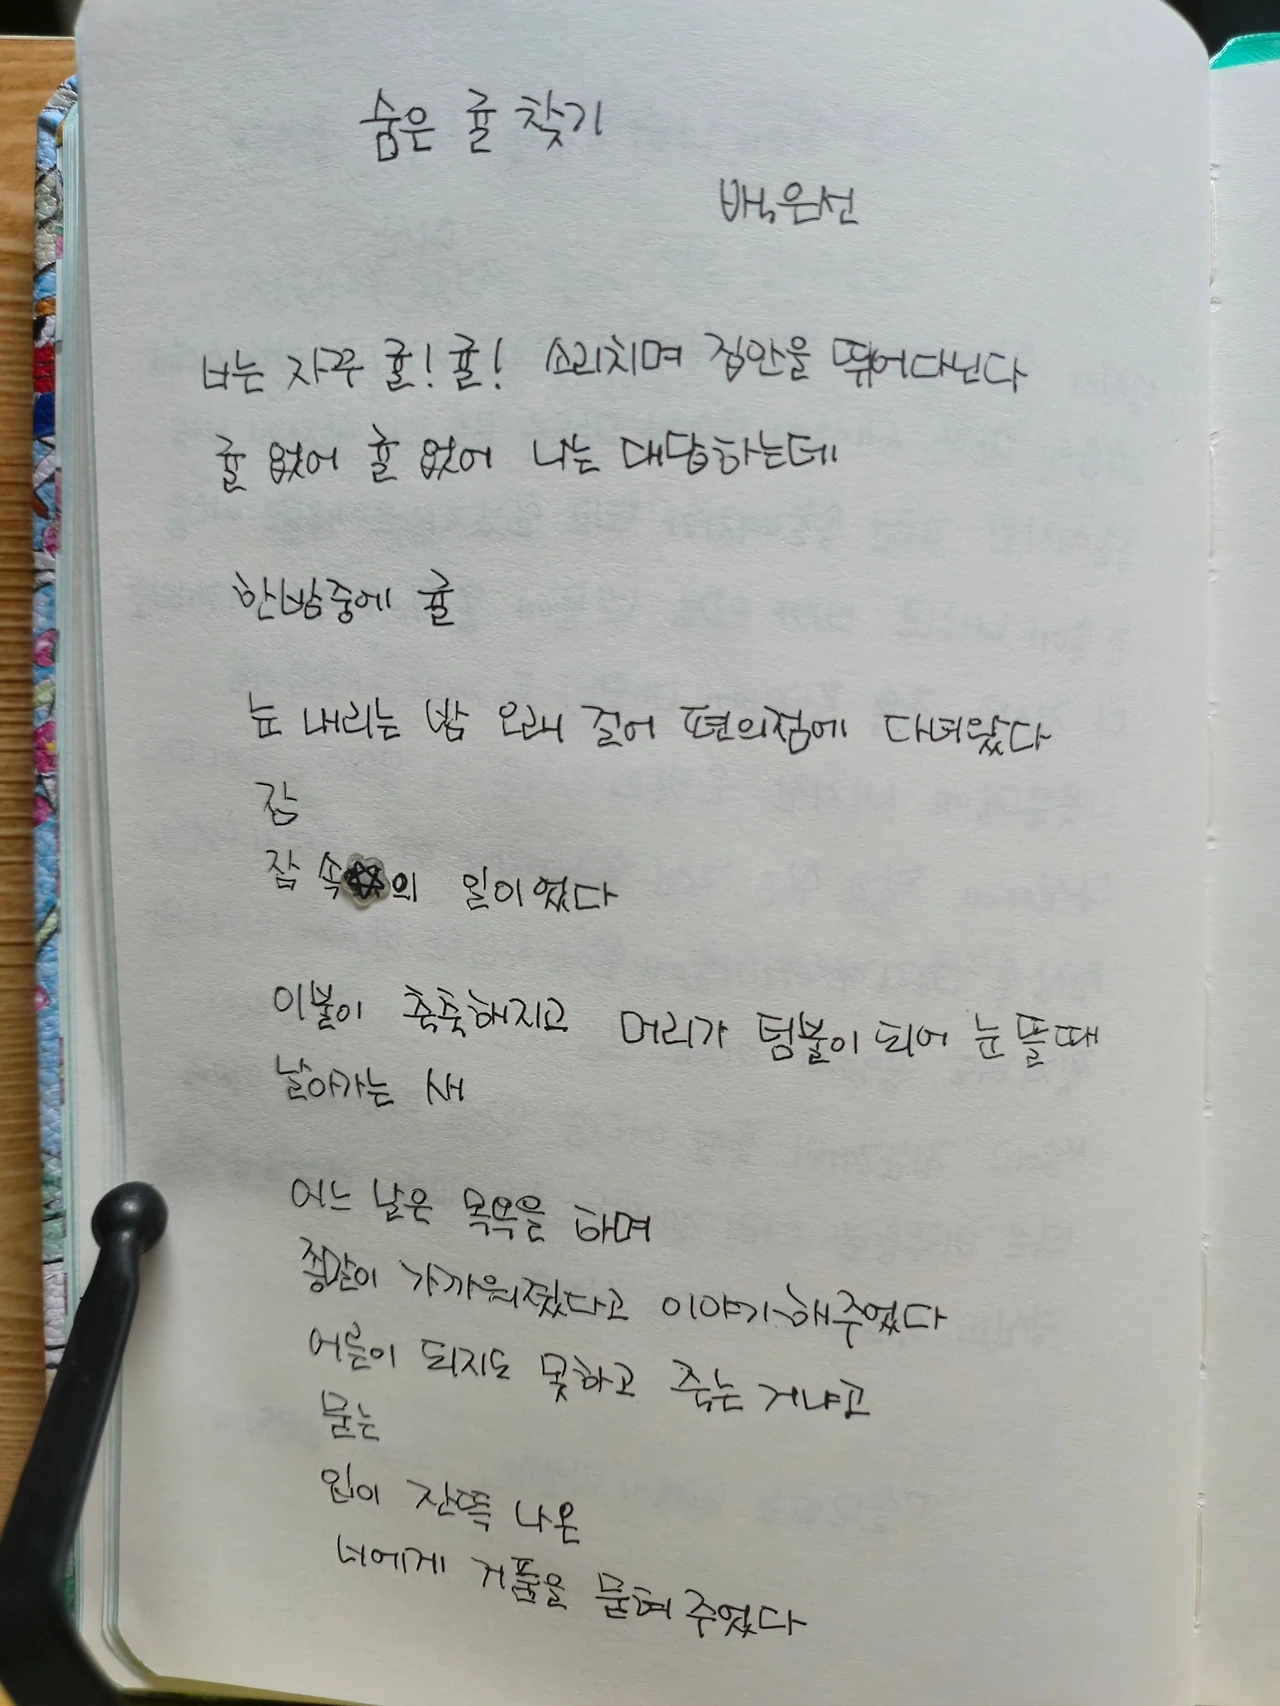 숨은 귤 찾기
백은선
너는 자꾸 귤! 귤! 소리치며 집안을 뛰어다닌다
귤 없어 귤 없어 나는 대답하는데
한밤중에 귤
눈 내리는 밤 오래 걸어 편의점에 다녀왔다
잠
잠 속의 일이었다
이불이 축축해지고 머리가 텀불이 되어 눈 뜰 때
날아가는 새
어느 날은 목욕을 하며
종말이 가까워졌다고 이야기해주었다
어른이 되지도 못하고 죽는 거냐고
묻는
입이 잔뜩 나온
너에게 거품을 묻혀 주었다